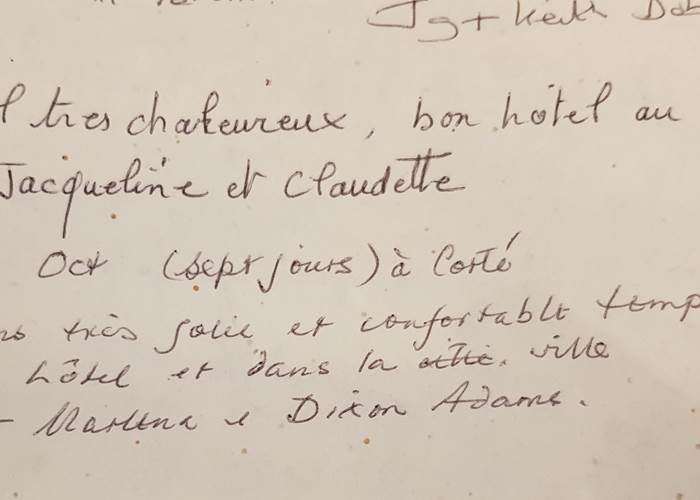 Jg + Keith
l tres chaleureux, bon hôtel au
Jacqueline et Claudette
Oct (sept jours) à Corté
très jolie et confortable temp
hôtel et dans la ville
- Marlena e Dixon Adams.